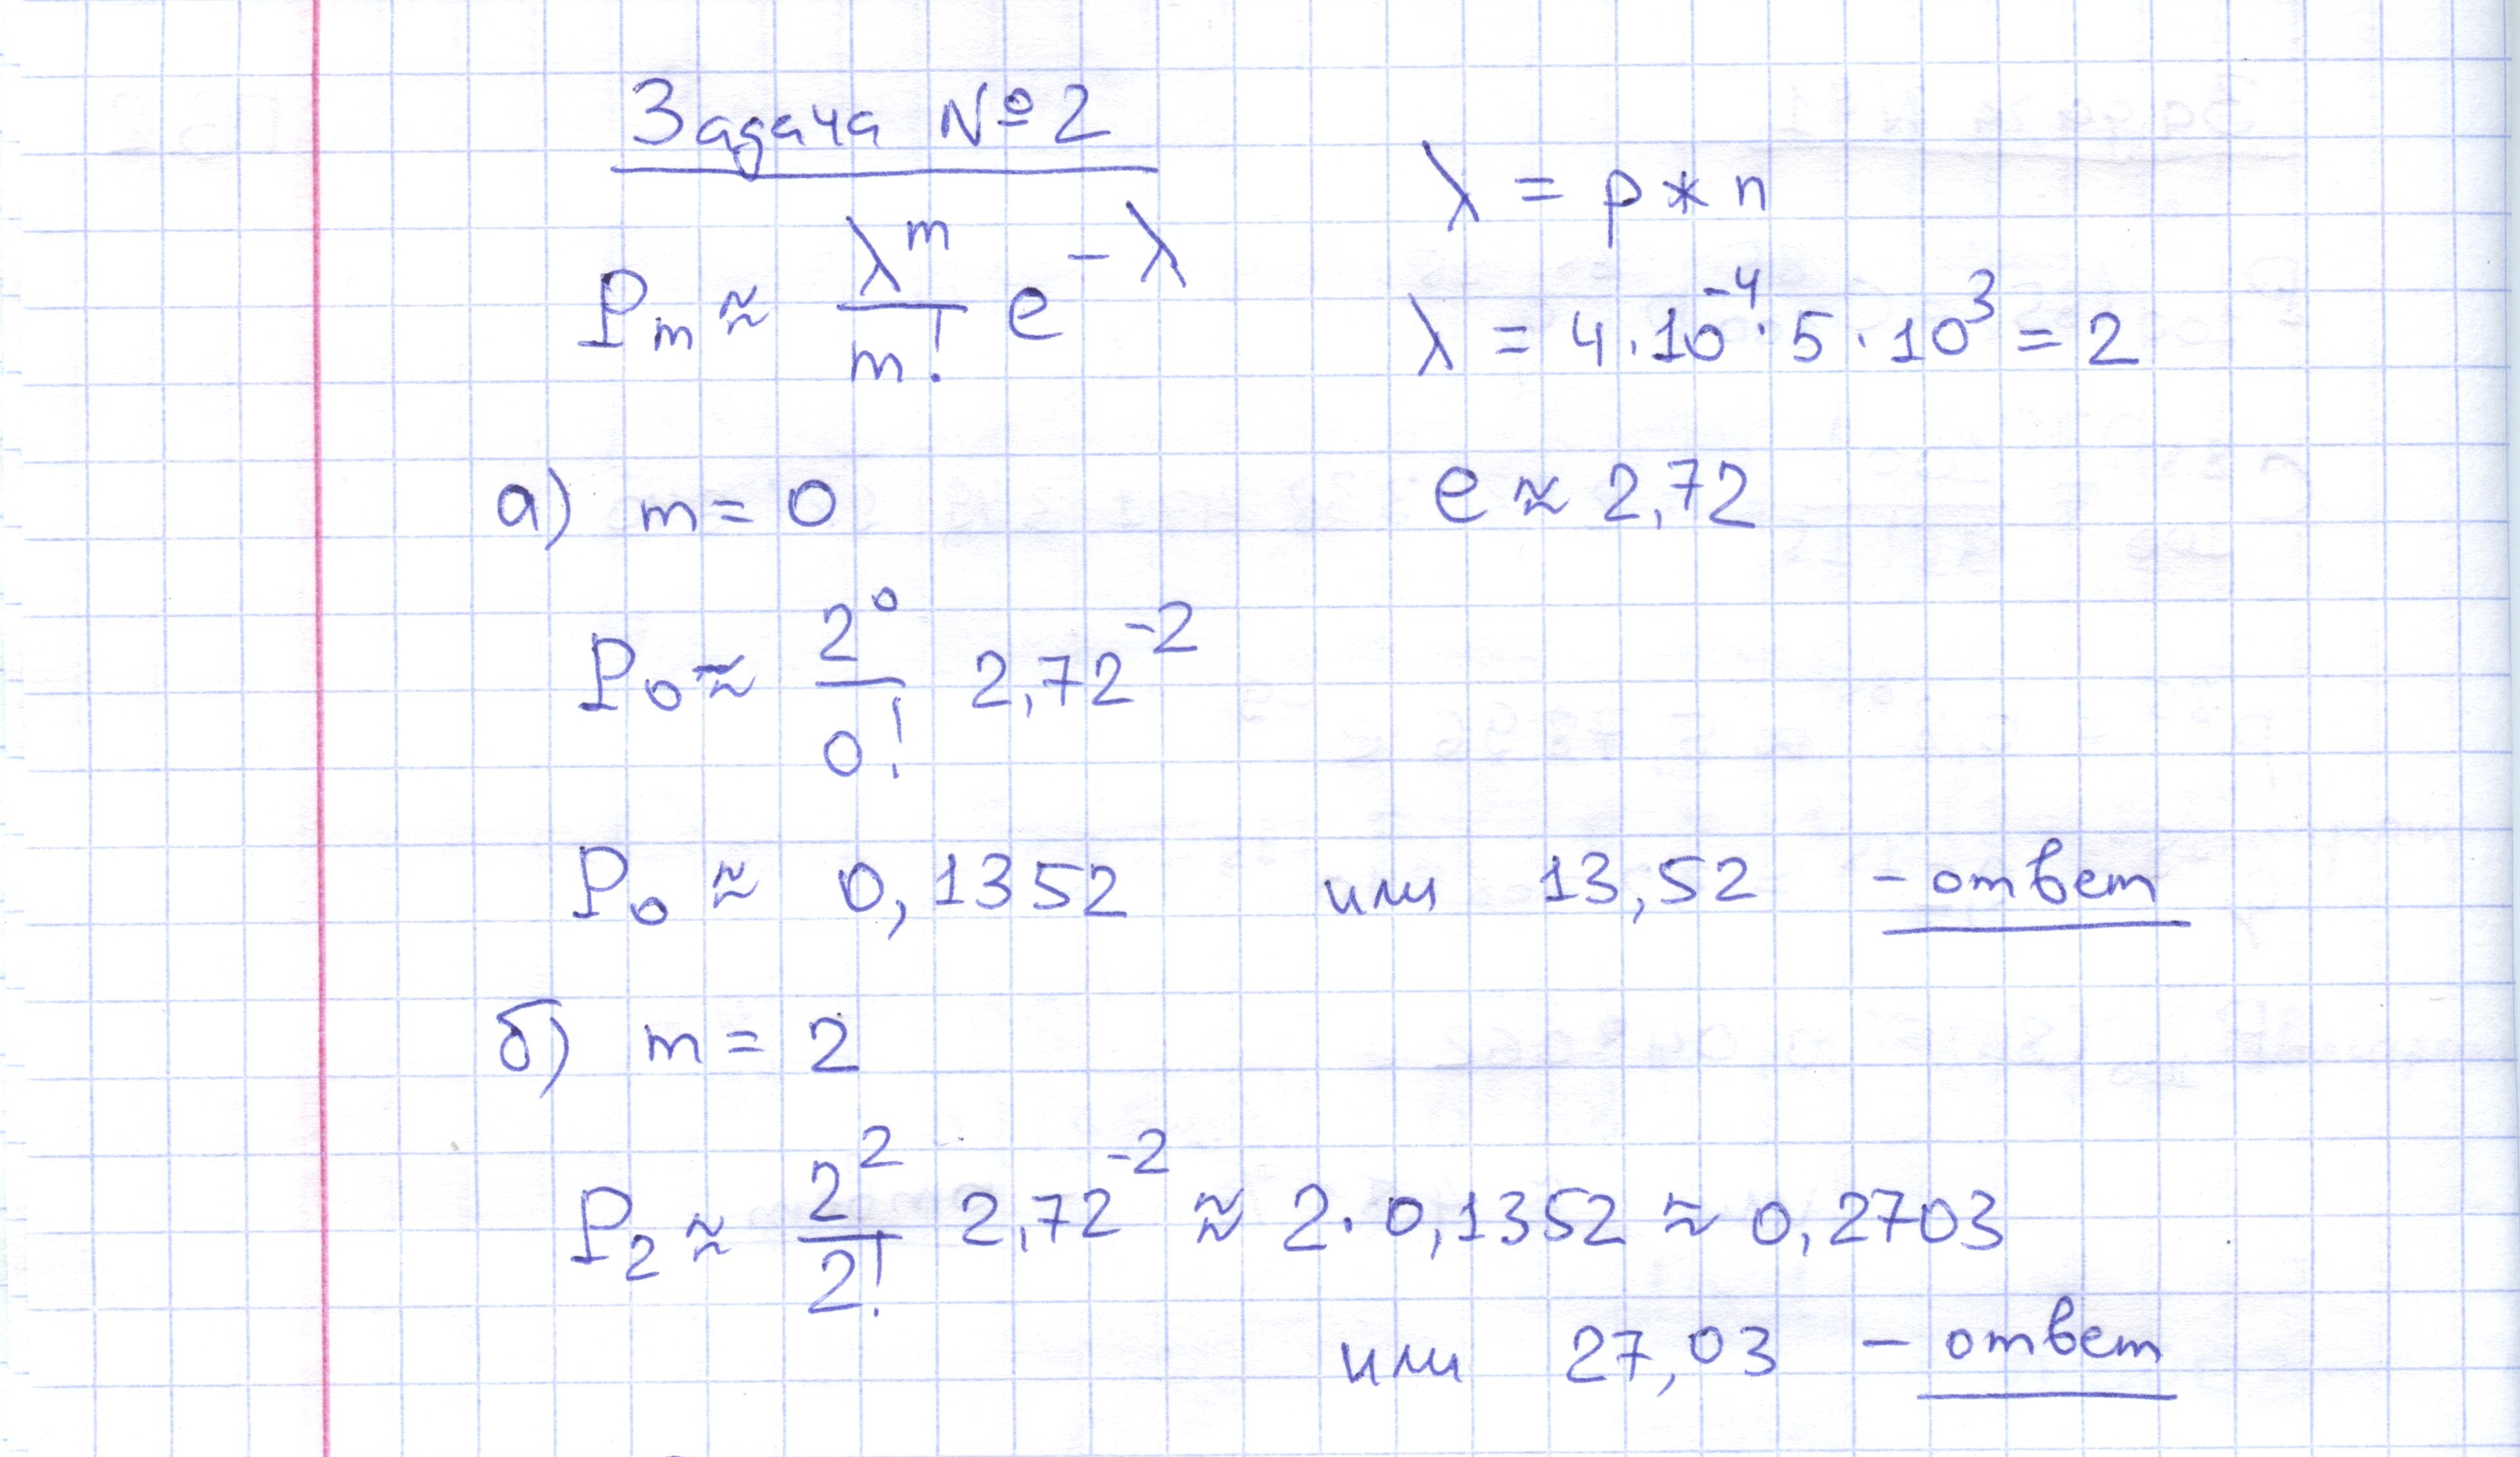 Задача №2
λ = p * n
Pm ≈ λ^m / m! e^-λ
λ = 4·10^-4·5·10^3 = 2
а) m = 0
e ≈ 2,72
P0 ≈ 2^0 / 0! 2,72^-2
P0 ≈ 0,1352 или 13,52 - ответ
б) m = 2
P2 ≈ 2^2 / 2! 2,72^-2 ≈ 2·0,1352 ≈ 0,2703
или 27,03 - ответ